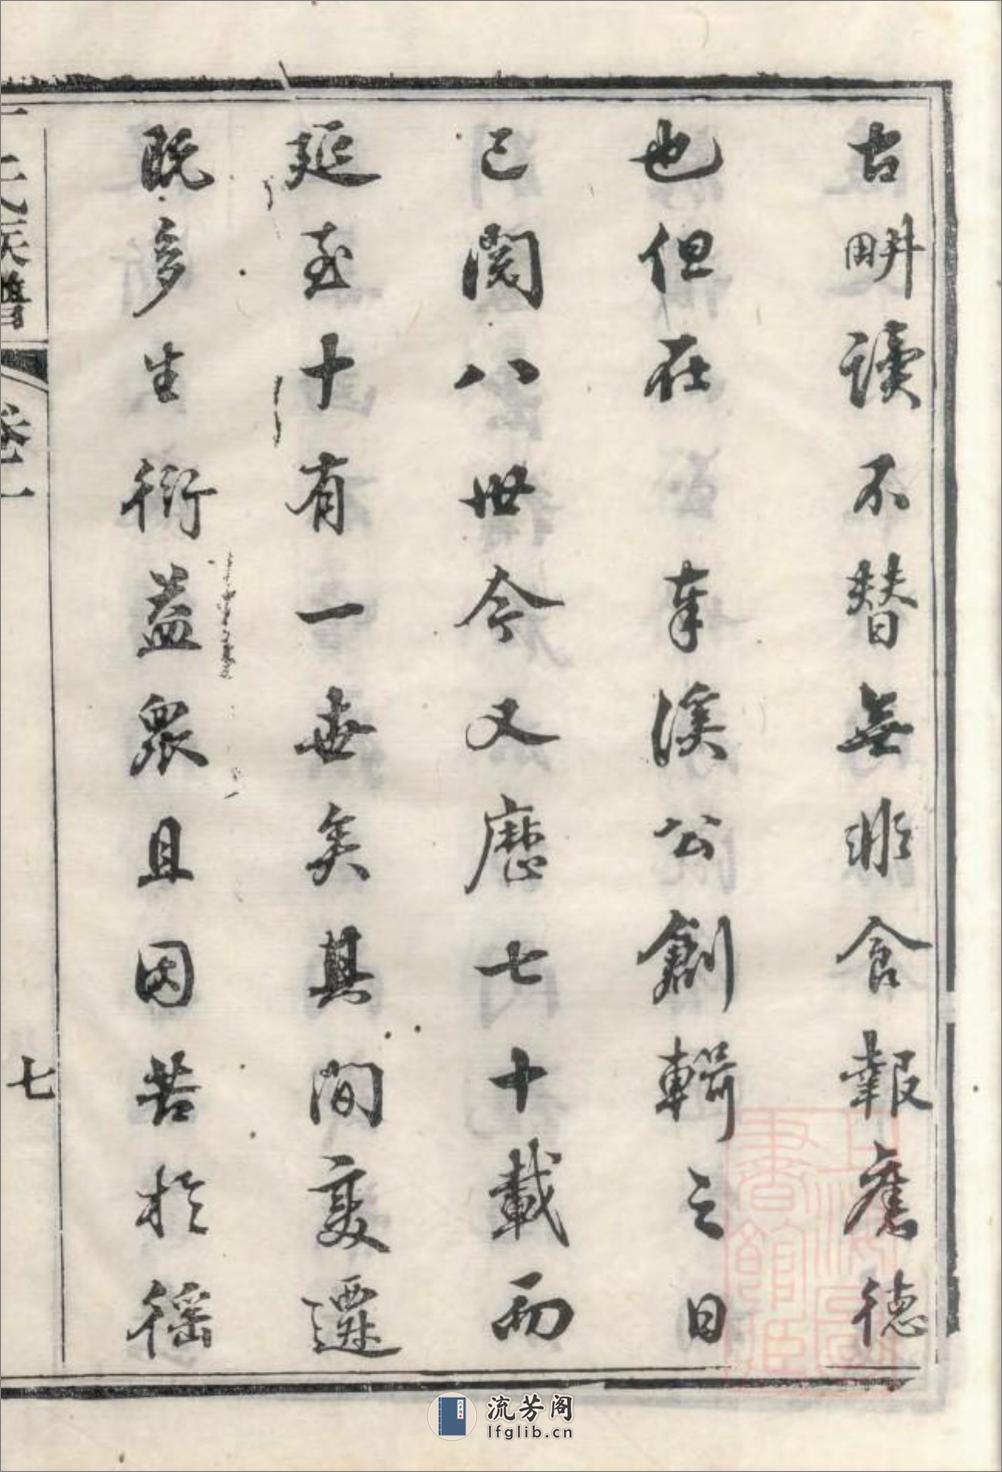 古畊讀不替無非食報舊德
也但在奉溪公創輯之日
已閱八世今又歷七十載而
延至十有一世矣其間變遷
既多生衍益衆且因苦於徭
王氏族譜
卷一
七
流芳阁
lfglib.cn